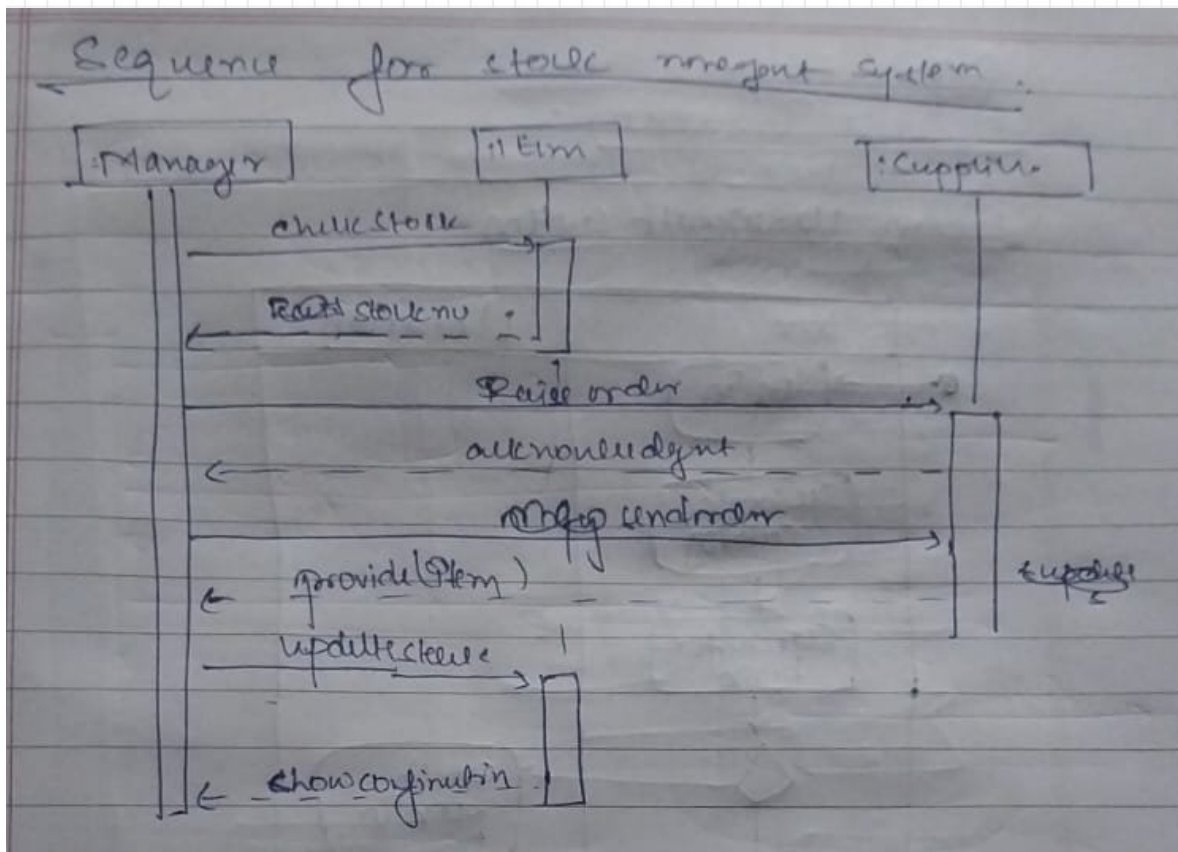 Sequence for stock system.
:Manager
:Item
:Supplier
check stock
stock no
Raise order
acknowledgnt
send order
provide(Item)
update stock
show confirmation